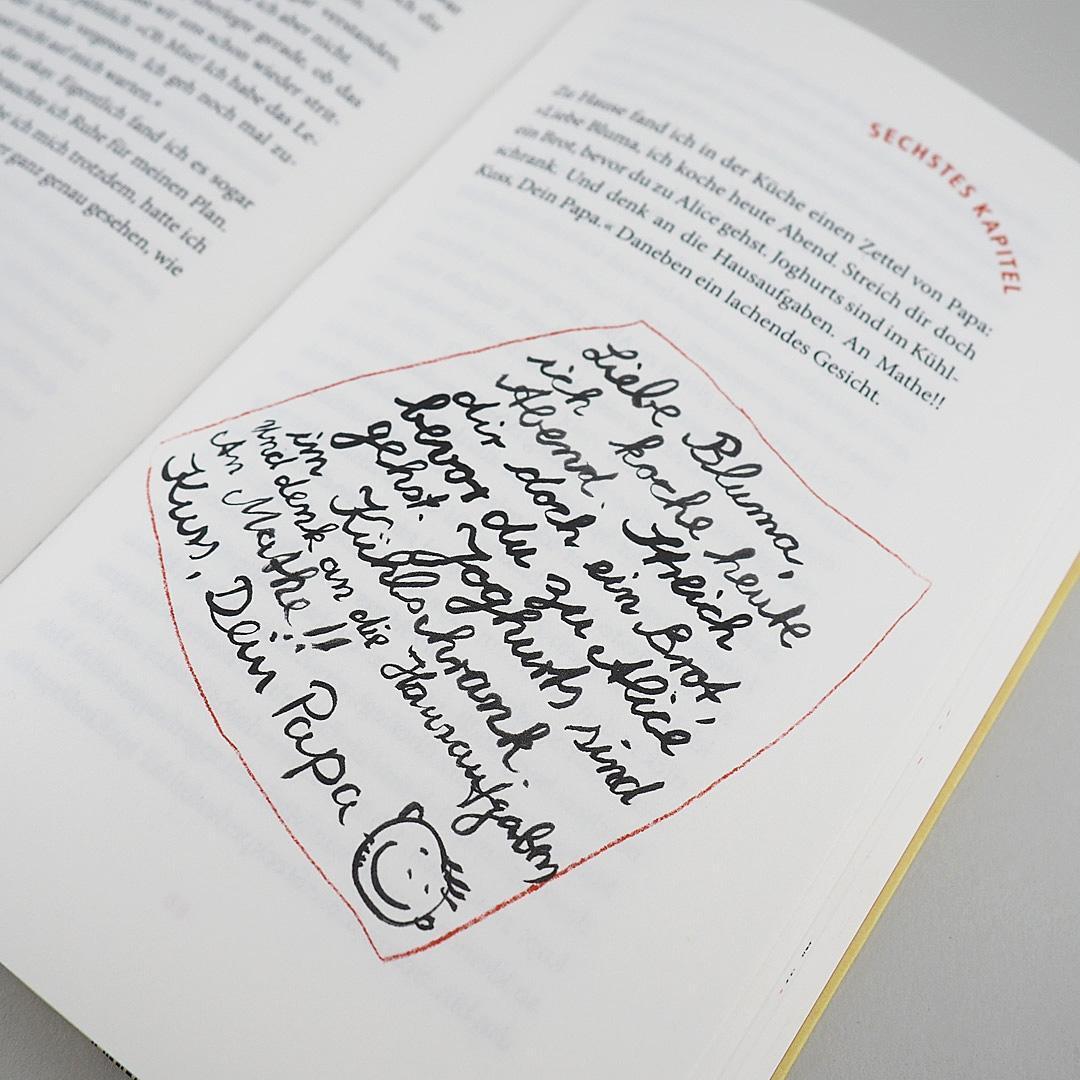 verstanden,
ich aber nicht.
gerade, ob das
wir uns schon wieder strit-
Mist! Ich habe das Le-
vergessen. Ich geh noch mal zu-
nicht auf mich warten.«
das okay. Eigentlich fand ich es sogar
ich Ruhe für meinen Plan.
ich mich trotzdem, hatte ich
ganz genau gesehen, wie
SECHSTES KAPITEL
Zu Hause fand ich in der Küche einen Zettel von Papa:
»Liebe Bluma, ich koche heute Abend. Streich dir doch
ein Brot, bevor du zu Alice gehst. Joghurts sind im Kühl-
schrank. Und denk an die Hausaufgaben. An Mathe!!
Kuss, Dein Papa.« Daneben ein lachendes Gesicht.
Liebe Bluma,
ich koche heute
Abend. Streich
dir doch ein Brot,
bevor du zu Alice
gehst. Joghurts sind
im Kühlschrank.
Und denk an die Hausaufgaben
An Mathe!!
Kuss, Dein Papa